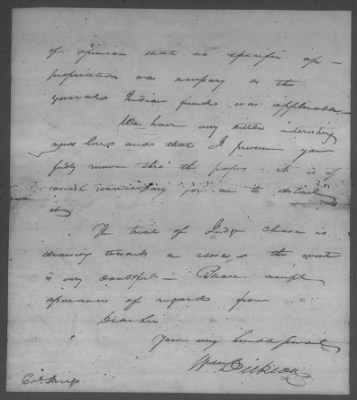 of opinion that no specific ap-
propriation was necessary as the
general Indian fund was applicable.
We have very little interesting
news here and that I presume you
fully receive thro' the papers it is of
course unnecessary for me to detail
it
The trial of Judge Chase is
drawing towards a close, & the event
is very doubtful — Please accept
assurances of regard from
Dear Sir
Your very humble Servt
Wm Dickson
Col. Meigs